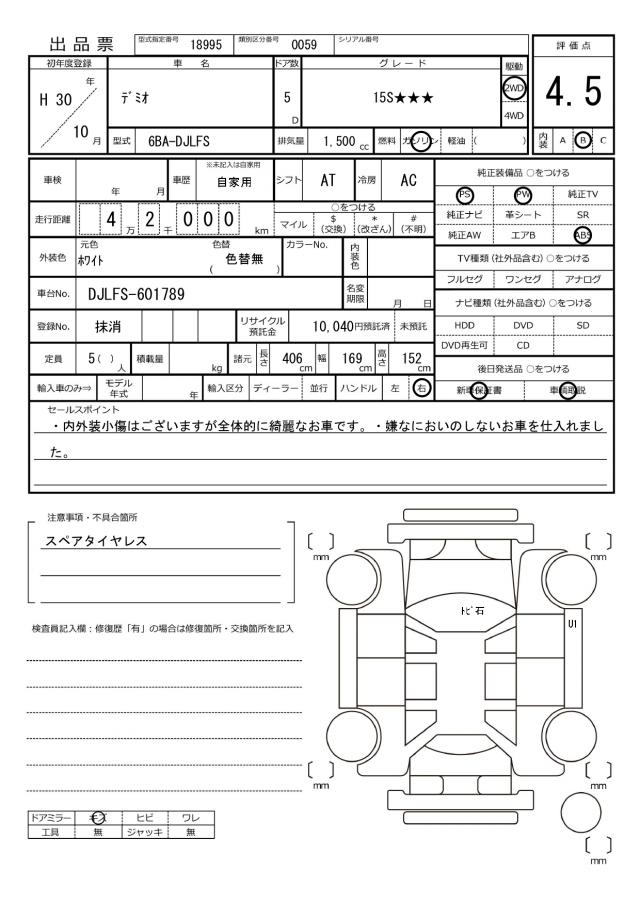 出品票 型式指定番号 18995 類別区分番号 0059 シリアル番号
評価点
4.5
初年度登録 車名 ドア数 グレード 駆動
H 30 年 10 月
デミオ 5 D 15S★★★ 2WD
4WD
型式 6BA-DJLFS 排気量 1,500 cc 燃料 ガソリン 軽油 ( ) 内装 A B C
車検 年 月 車歴 ※未記入は自家用 自家用 シフト AT 冷房 AC
走行距離 4 2 0 0 0 万 千 km ○をつける
マイル $ (交換) * (改ざん) # (不明)
外装色 元色 ホワイト 色替 ( 色替無 ) カラーNo. 内装色
車台No. DJLFS-601789 名変期限 月 日
登録No. 抹消 リサイクル預託金 10,040円預託済 未預託
定員 5 ( ) 人 積載量 kg 諸元 長さ 406 cm 幅 169 cm 高さ 152 cm
輸入車のみ⇒ モデル年式 年 輸入区分 ディーラー 並行 ハンドル 左 右
純正装備品 ○をつける
PS PW 純正TV
純正ナビ 革シート SR
純正AW エアB ABS
TV種類 (社外品含む) ○をつける
フルセグ ワンセグ アナログ
ナビ種類 (社外品含む) ○をつける
HDD DVD SD
DVD再生可 CD
後日発送品 ○をつける
新車保証書 車輌取説
セールスポイント
・内外装小傷はございますが全体的に綺麗なお車です。・嫌なにおいのしないお車を仕入れまし
た。
注意事項・不具合箇所
スペアタイヤレス
検査員記入欄：修復歴「有」の場合は修復箇所・交換箇所を記入
ドアミラー キズ ヒビ ワレ
工具 無 ジャッキ 無
〔 〕 mm
〔 〕 mm
トビ石
U1
〔 〕 mm
〔 〕 mm
〔 〕 mm